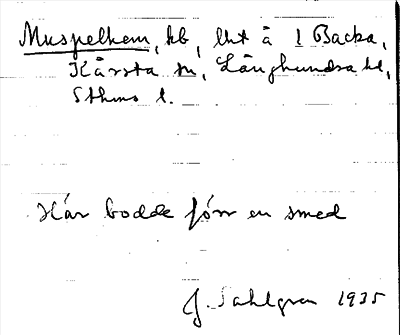 Muspelhem, kb, lht å 1 Backa,
Kårsta sn, Långhundra hd,
Sthms l.
Här bodde förr en smed
J. Sahlgren 1935